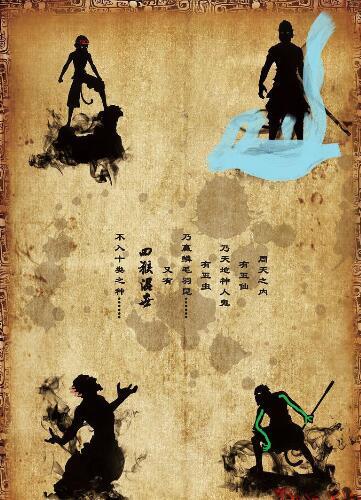 周天之内
有五仙
乃天地神人鬼
有五虫
乃蠃鳞毛羽昆……
又有
四猴混世
不入十类之种……